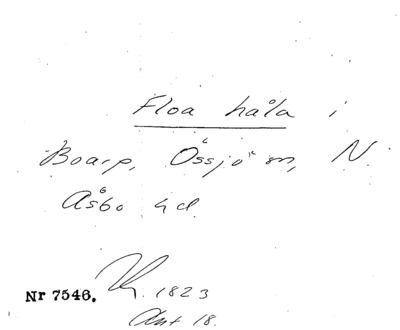 Floa håla i
Boarp, Össjö sn, N.
Åsbo hd.
Nr 7546.
1823
18.